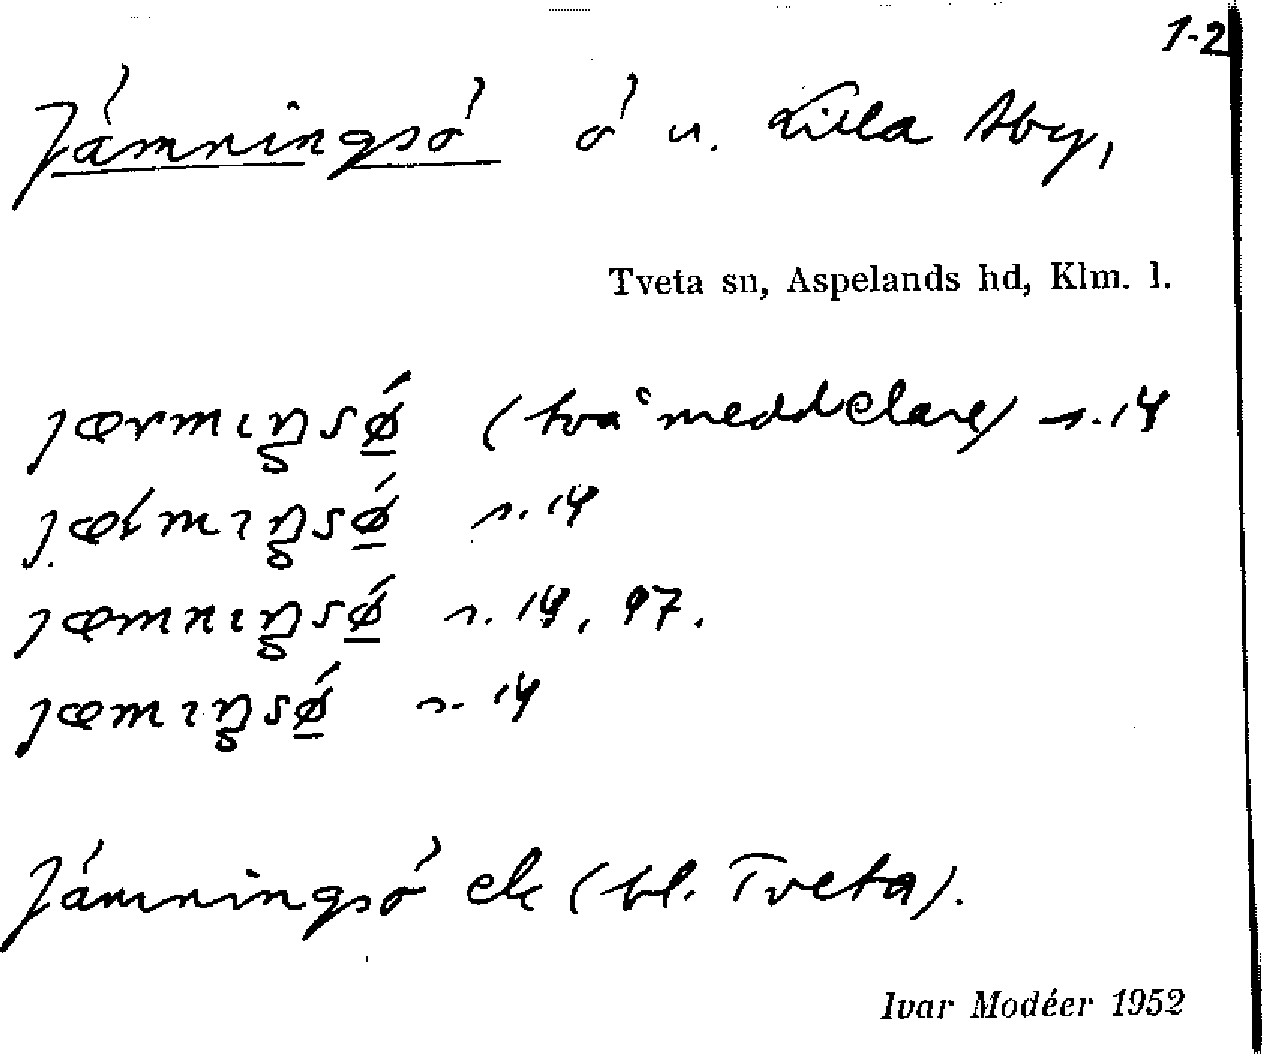 1-2
Jämningsö ö u. Lilla Aby,
Tveta sn, Aspelands hd, Klm. l.
jærmıŋsǿ (två meddelare) s. 14
jælmıŋsǿ s. 14
jæmnıŋsǿ s. 14, 97.
jæmıŋsǿ s. 14
Jämningsö ek (bl. Tveta).
Ivar Modéer 1952